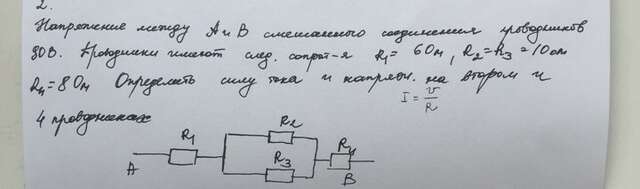 2.
Напряжение между A и B смешанного соединения проводников
90В. Проводники имеют след. сопрот-я R₁ = 6Ом, R₂=R₃=10ом
R₄=8Ом Определить силу тока и напряжен. на втором и
I = U/R
4 проводниках
R₁
R₂
R₃
R₄
A
B